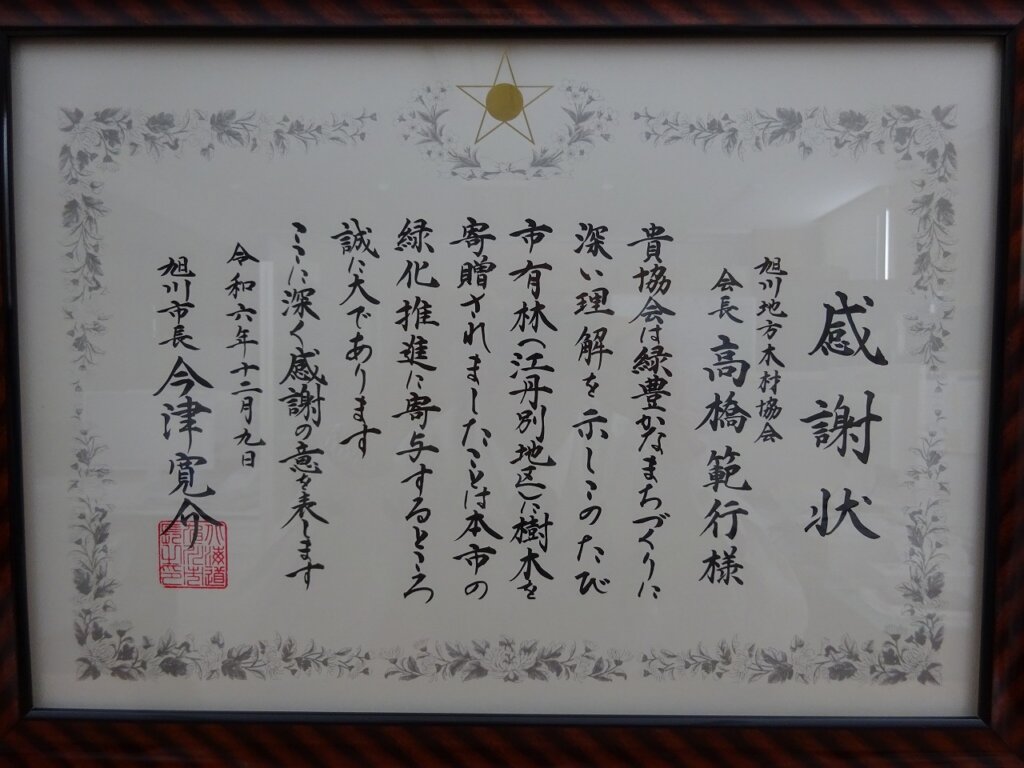 感謝状
旭川地方木材協会
会長 高橋範行様
貴協会は緑豊かなまちづくりに
深い理解を示しこのたび
市有林(江丹別地区)に樹木を
寄贈されましたことは本市の
緑化推進に寄与するところ
誠に大であります
ここに深く感謝の意を表します
令和六年十二月九日
旭川市長 今津寛介
北海道
旭川市
長之印